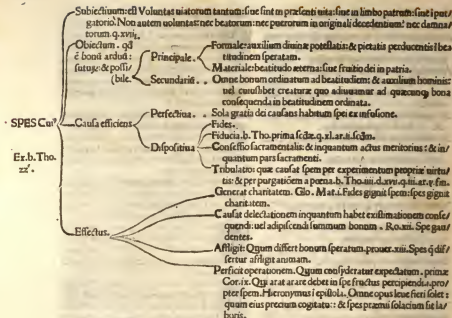 Subiectiuum: est Voluntat uiatorum tantum: siue sint in præsenti uita: siue in limbo patrum: siue i pur/
gatorio. Non autem uoluntas: nec beatorum: nec puerorum in originali decedentium: nec damna/
torum. q.xviij.
Obiectum. qd
é bonū arduū:
futurū: & possi/
bile.
Principale.
Formale: auxilium diuinæ potestatis: & pietatis perducentis l bea
titudinem speratam.
Materiale: beatitudo æterna: siue fruitio dei in patria.
Secundariū.
Omne bonum ordinatum ad beatitudinem: & auxilium hominis:
uel cuiuslibet creaturæ quo adiuuamur ad quæcunq; bona
consequenda in beatitudinem ordinata.
SPES Cui⁹
Ex.b.Tho.
22ᵉ.
Causa efficiens
Perfectiua.
Sola gratia dei causans habitum spei ex infusione.
Dispositiua
Fides.
Fiducia.b.Tho.prima scdæ.q.xl.ar.ii.scdm.
Confessio sacramentalis: & inquantum actus meritorius: & in/
quantum pars sacramenti.
Tribulatio: quæ causat spem per experimentum propriæ uirtu/
tis: & per purgatiōem a pœna.b.Tho.iiii.d.xv.q.
Effectus.
Generat charitatem. Glo. Mat.i. Fides gignit spem: spes gignit
charitatem.
Causat delectationem inquantum habet existimationem conse/
quendi: uel adipiscendi summum bonum. Ro.xii. Spe gau/
dentes.
Affligit: Quum differt bonum speratum.prouer.xiii. Spes q̄ dif/
fertur affligit animam.
Perficit operationem. Quum consyderatur expectatum. primæ
Cor.ix. Qui arat arare debet in spe fructus percipiendi.pro/
pter spem. Hieronymus i epistola. Omne opus leue fieri solet:
quum eius precium cogitatur: & spes præmii solacium fit la/
boris.